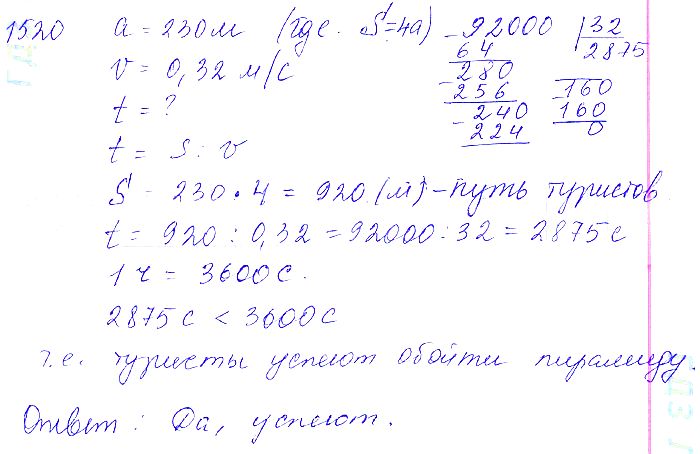 1520 a = 230 м (где S = 4a)
v = 0,32 м/с
t = ?
t = s : v
S - 230 • 4 = 920 (м) - путь туристов
t = 920 : 0,32 = 92000 : 32 = 2875 с
1 ч = 3600 с.
2875 с < 3600 с
т.е. туристы успеют обойти пирамиду.
Ответ: Да, успеют.
- 92000 | 32
64 2875
- 280
256
- 240
224
- 160
160
0